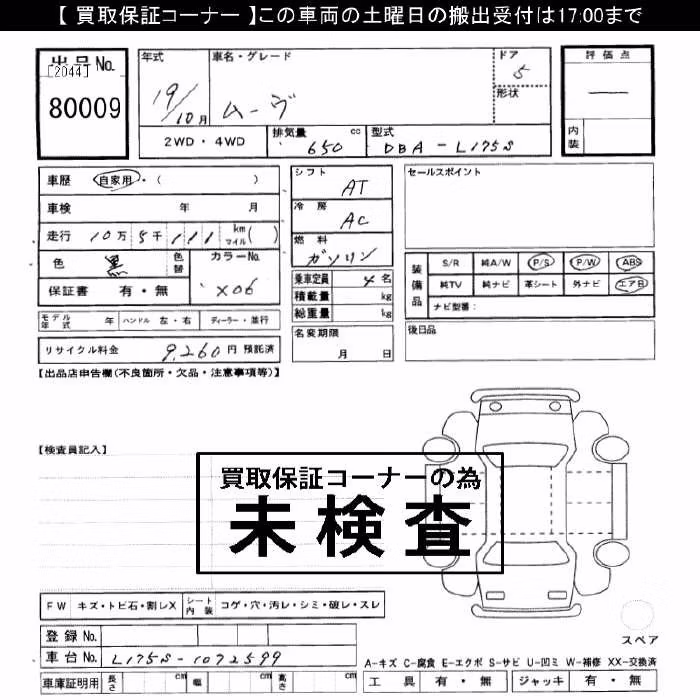 【 買取保証コーナー 】この車両の土曜日の搬出受付は17:00まで
出品No.
[2044]
80009
年式
19/10月
車名・グレード
ムーヴ
ドア
5
形状
評価点
内装
2WD・4WD
排気量 650 cc
型式 DBA-L175S
車歴 自家用・( )
車検 年 月
走行 10万5千111 km マイル( )
色 黒 色替 カラーNo. X06
保証書 有・無
モデル年式 年 ハンドル 左・右 ディーラー・並行
リサイクル料金 9,260円 預託済
シフト AT
冷房 AC
燃料 ガソリン
乗車定員 4名
積載量 kg
総重量 kg
名変期限 月 日
セールスポイント
装備品 S/R 純A/W P/S P/W ABS
純TV 純ナビ 革シート 外ナビ エアB
ナビ型番:
後日品
【出品店申告欄(不良箇所・欠品・注意事項等)】
【検査員記入】
買取保証コーナーの為
未検査
FW キズ・トビ石・割レX シート内装 コゲ・穴・汚レ・シミ・破レ・スレ
登録No.
車台No. L175S-1072599
車庫証明用 長さ cm 幅 cm 高さ cm
スペア
A-キズ C-腐食 E-エクボ S-サビ U-凹ミ W-補修 XX-交換済
工具 有・無 ジャッキ 有・無